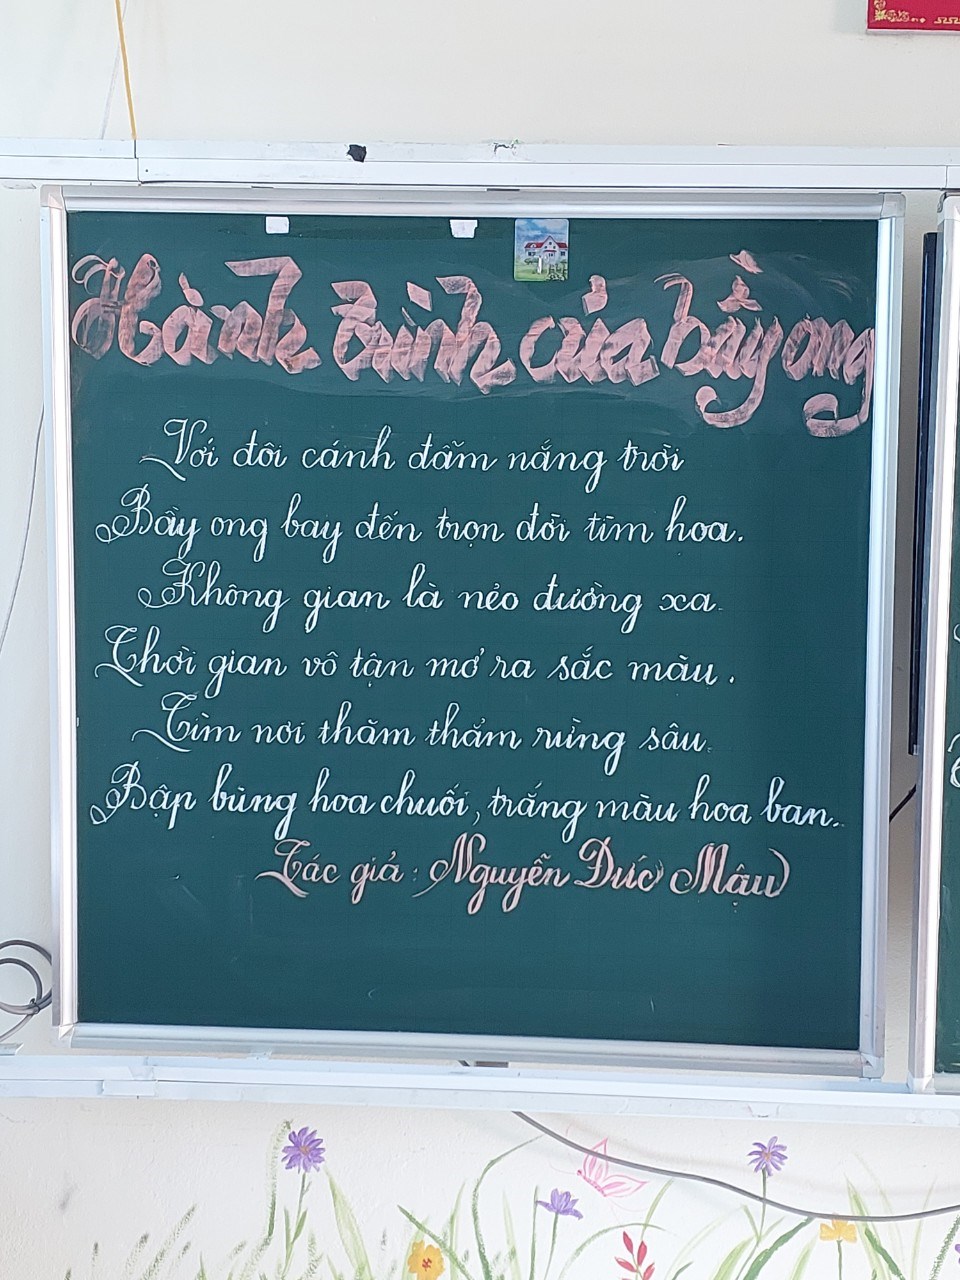 Hành trình của bầy ong
Với đôi cánh đẫm nắng trời
Bầy ong bay đến trọn đời tìm hoa.
Không gian là nẻo đường xa
Thời gian vô tận mở ra sắc màu.
Tìm nơi thăm thẳm rừng sâu
Bập bùng hoa chuối, trắng màu hoa ban..
Tác giả: Nguyễn Đức Mậu